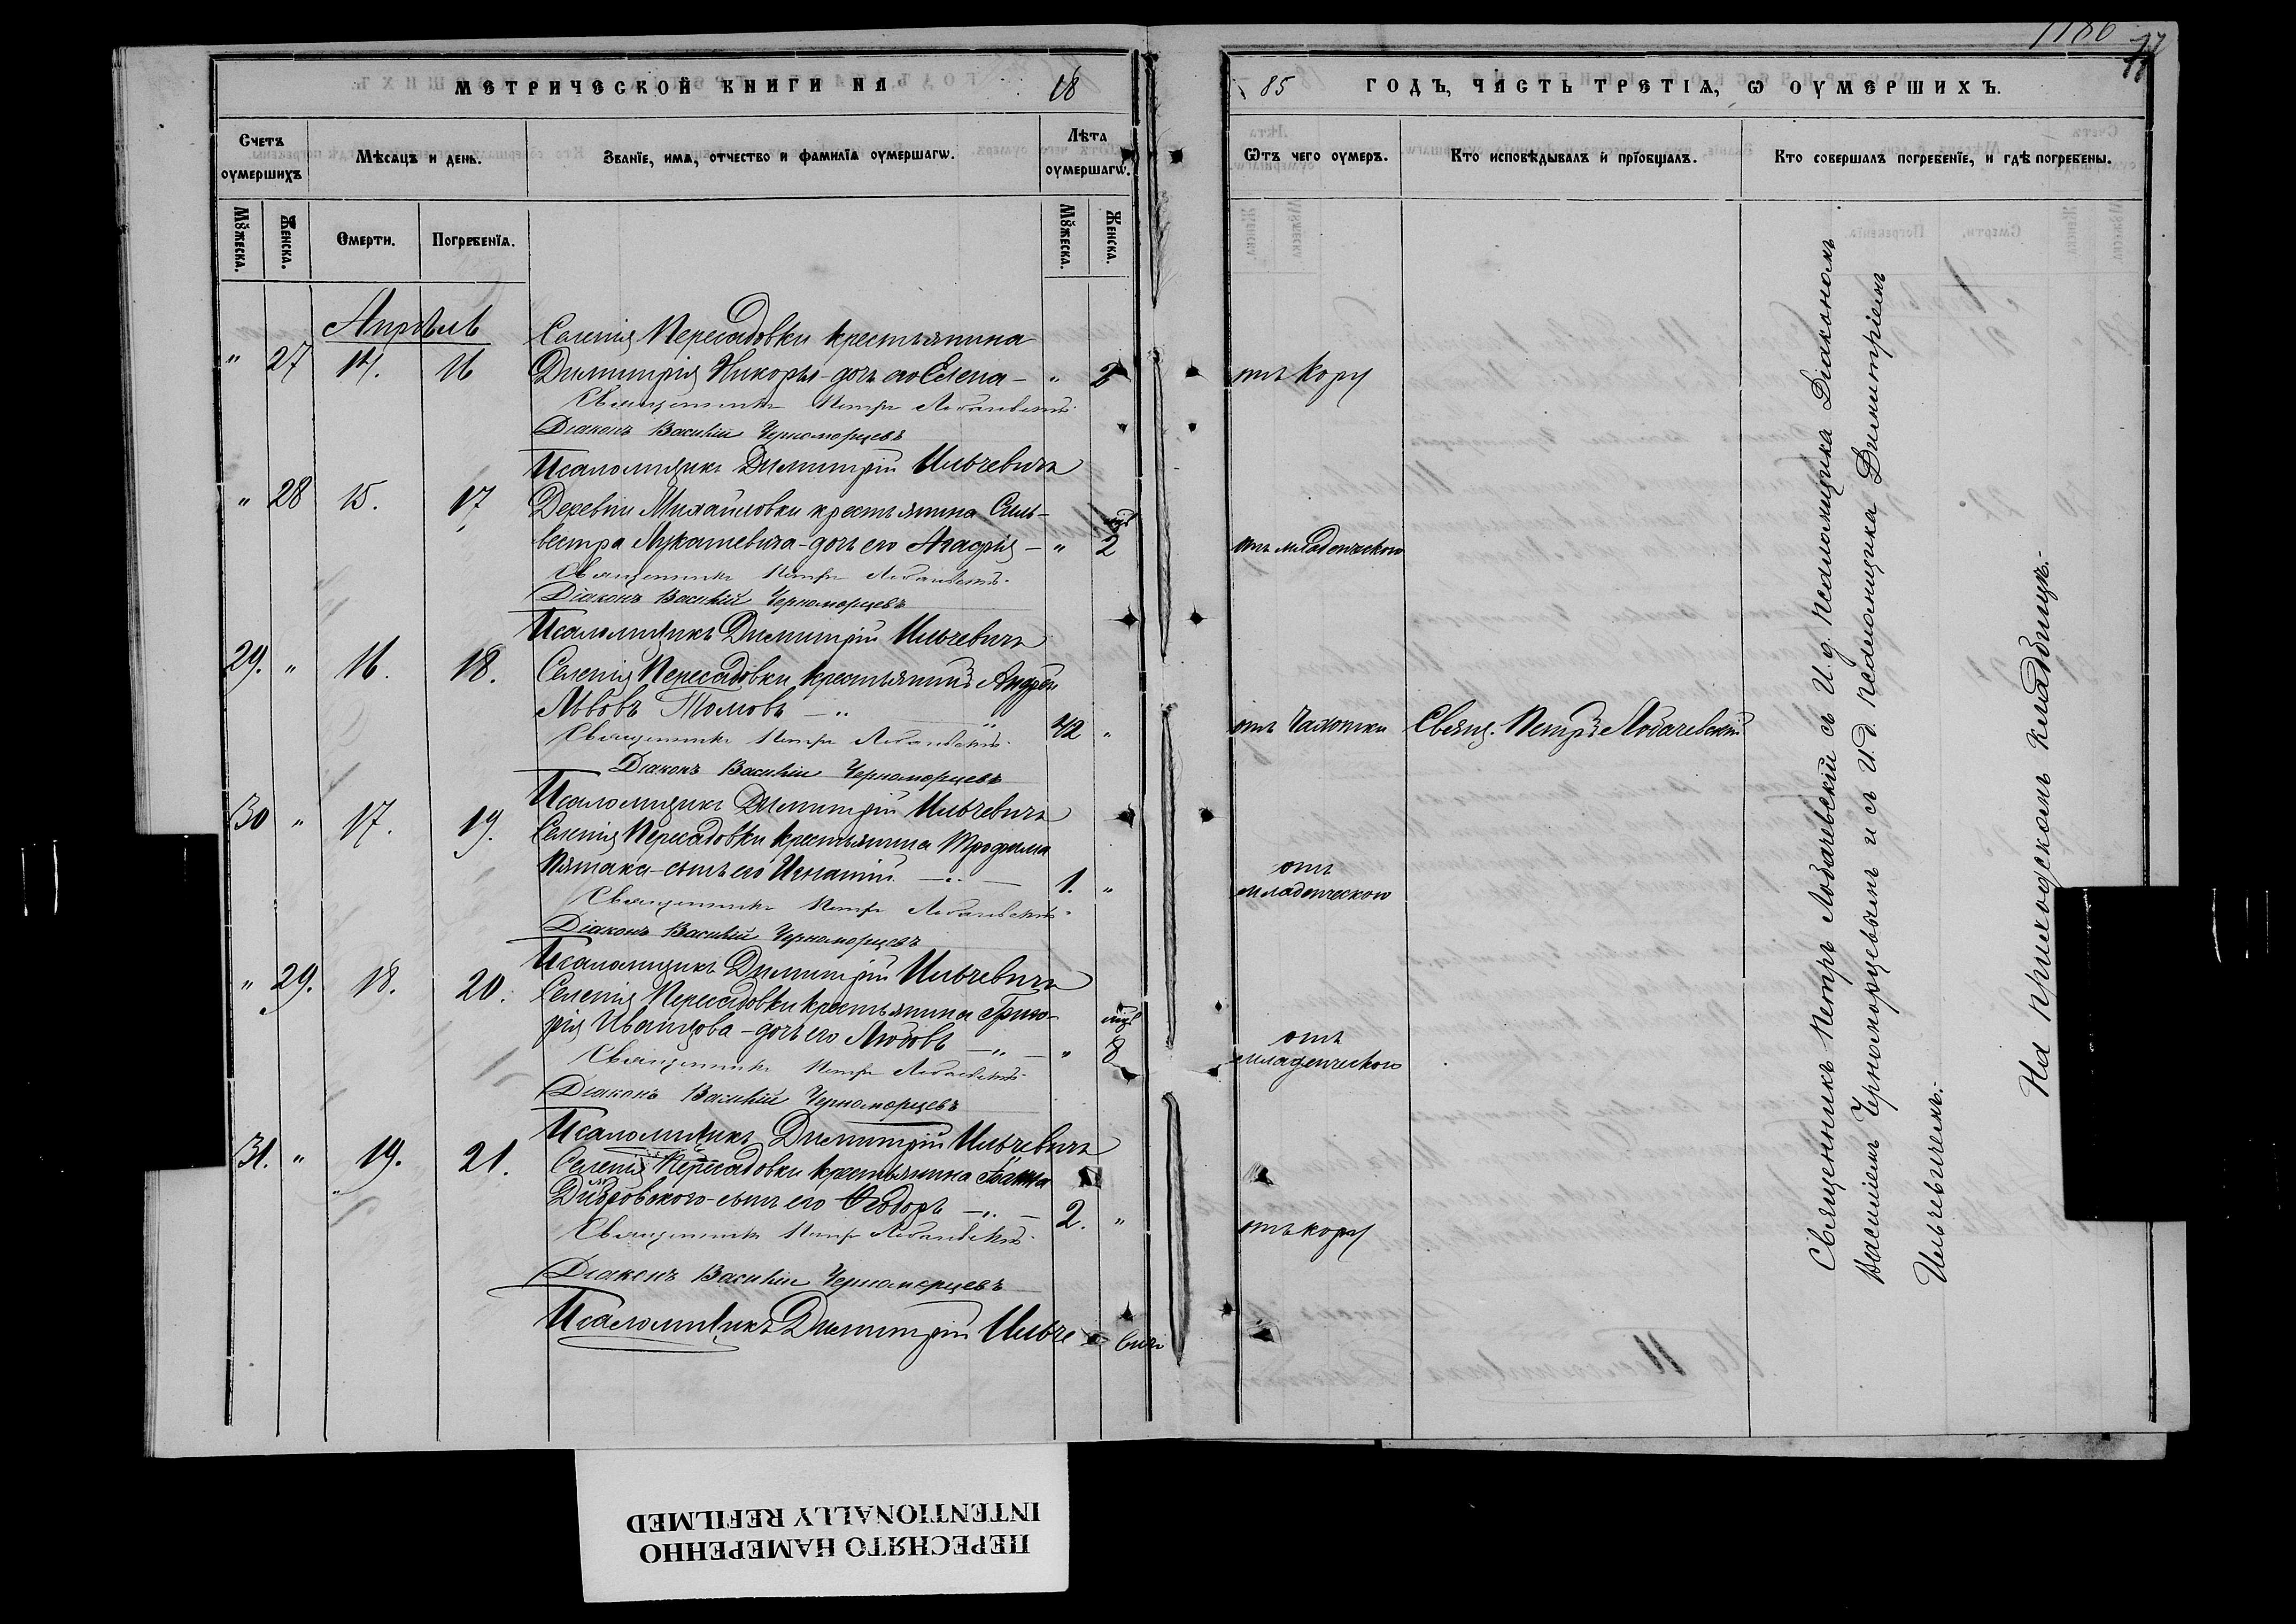 МЕТРИЧЕСКОЙ КНИГИ НА 18
Счетъ оумершихъ
Мѣсѧцъ и день.
Званїе, имѧ, отчество и фамилїѧ оумершагѡ.
Лѣта оумершагѡ.
Мꙋжеска.
Женска.
Смерти.
Погребенїѧ.
Мꙋжеска.
Женска.
Апрѣль
" 27 14. 16 Селенія Пересадовки крестьянина
Димитрія Никоры - дочь его Елена - " 2
Священникъ Петръ Лобачевскій.
Діаконъ Василій Черноморцевъ
Псаломщикъ Димитрій Ильчевичъ
" 28 15. 17 Деревни Михайловки крестьянина Силь-
вестра Лукашевича - дочь его Агафія - " мцѣ 2
Священникъ Петръ Лобачевскій.
Діаконъ Василій Черноморцевъ
Псаломщикъ Димитрій Ильчевичъ
29. " 16. 18. Селенія Пересадовки крестьянинъ Андрей
Львовъ Томовъ - " 42 "
Священникъ Петръ Лобачевскій.
Діаконъ Василій Черноморцевъ
Псаломщикъ Димитрій Ильчевичъ
30 " 17. 19. Селенія Пересадовки крестьянина Трофима
Пятака - сынъ его Игнатій - " - 1. "
Священникъ Петръ Лобачевскій.
Діаконъ Василій Черноморцевъ
Псаломщикъ Димитрій Ильчевичъ
" 29. 18. 20. Селенія Пересадовки крестьянина Григо-
рія Иванцова - дочь его Любовь - " - " мцѣ 8
Священникъ Петръ Лобачевскій.
Діаконъ Василій Черноморцевъ
Псаломщикъ Димитрій Ильчевичъ
31. " 19. 21. Селенія Пересадовки крестьянина
Дибровского - сынъ его Ѳеодоръ - " - 2. "
Священникъ Петръ Лобачевскій.
Діаконъ Василій Черноморцевъ
Псаломщикъ Димитрій Ильчевичъ
1186
85 ГОДЪ, ЧАСТЬ ТРЕТІѦ, Ѡ ОУМЕРШИХЪ.
Ѿтъ чего оумеръ.
Кто исповѣдывалъ и прїобщалъ.
Кто совершалъ погребенїе, и гдѣ погребены.
отъ кору
отъ младенческого
отъ чахотки Свящ. Петръ Лобачевскій
отъ
младенческого
отъ
младенческого
отъ кору
Священникъ Петръ Лобачевскій съ И. д. Псаломщика Діакономъ
Василіемъ Черноморцевымъ и съ И. д. Псаломщика Димитріемъ
Ильчевичемъ.
На приходскомъ кладбищѣ.-
ПЕРЕСНЯТО НАМЕРЕННО
INTENTIONALLY REFILMED